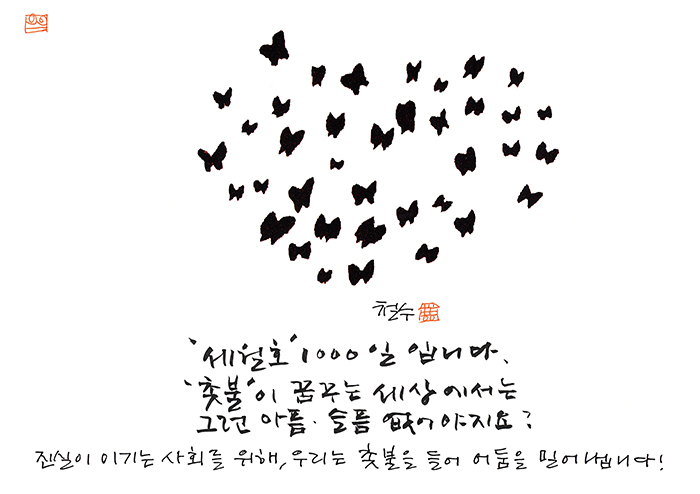 철수
'세월호' 1000일 입니다.
'촛불'이 꿈꾸는 세상에서는
그런 아픔·슬픔 없어야지요?
진실이 이기는 사회를 위해, 우리는 촛불을 들어 어둠을 밀어냅니다!